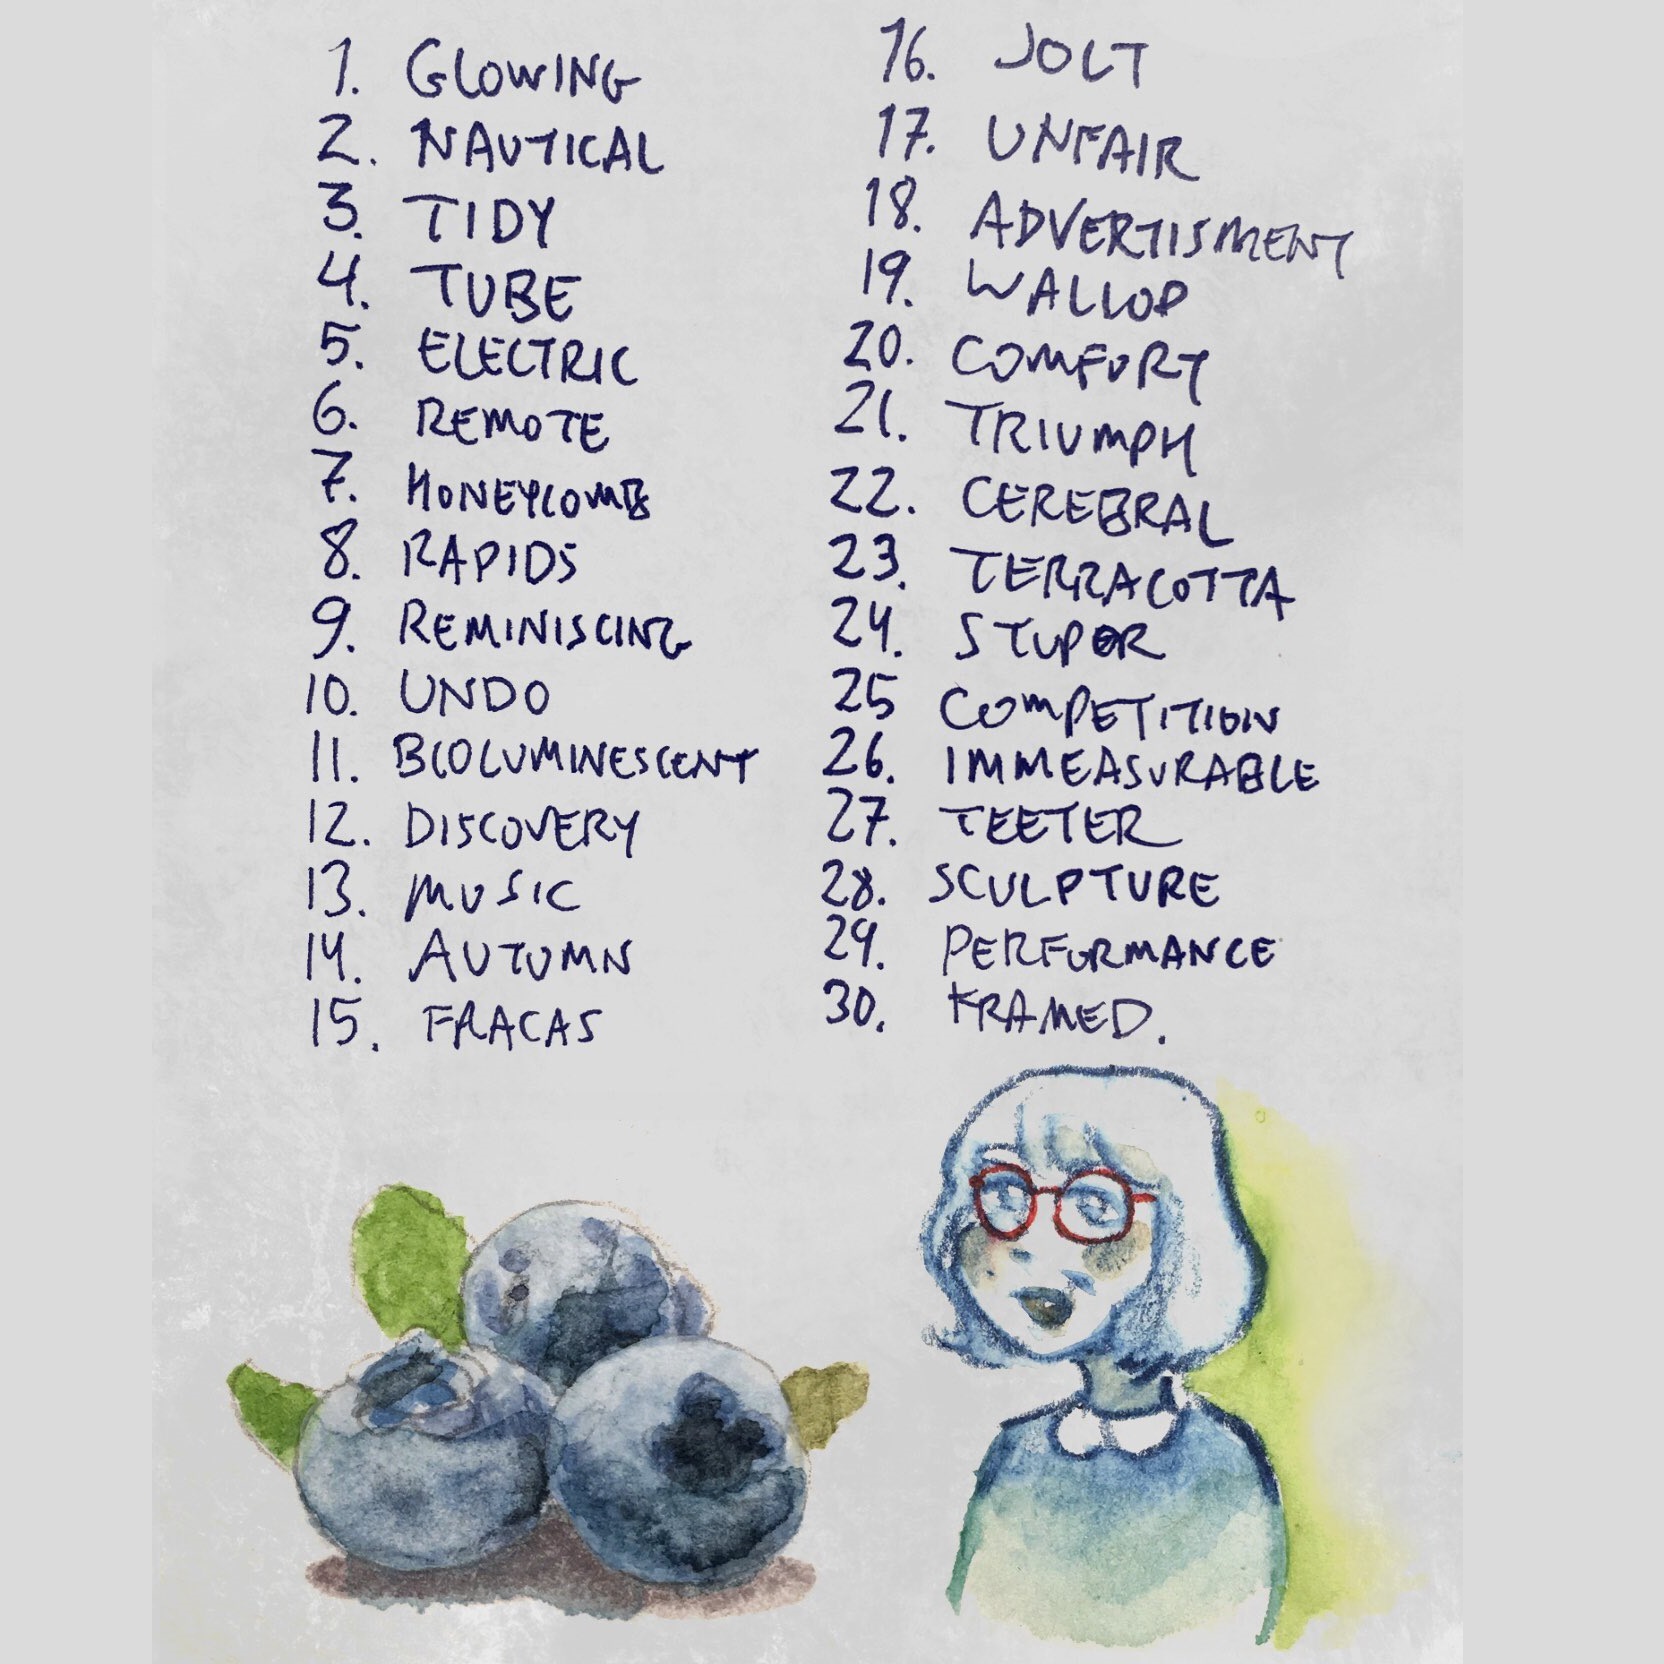 1. GLOWING
2. NAUTICAL
3. TIDY
4. TUBE
5. ELECTRIC
6. REMOTE
7. HONEYCOMB
8. RAPIDS
9. REMINISCING
10. UNDO
11. BIOLUMINESCENT
12. DISCOVERY
13. MUSIC
14. AUTUMN
15. FRACAS
16. JOLT
17. UNFAIR
18. ADVERTISMENT
19. WALLOP
20. COMFORT
21. TRIUMPH
22. CEREBRAL
23. TERRACOTTA
24. STUPOR
25 COMPETITION
26. IMMEASURABLE
27. TEETER
28. SCULPTURE
29. PERFORMANCE
30. FRAMED.